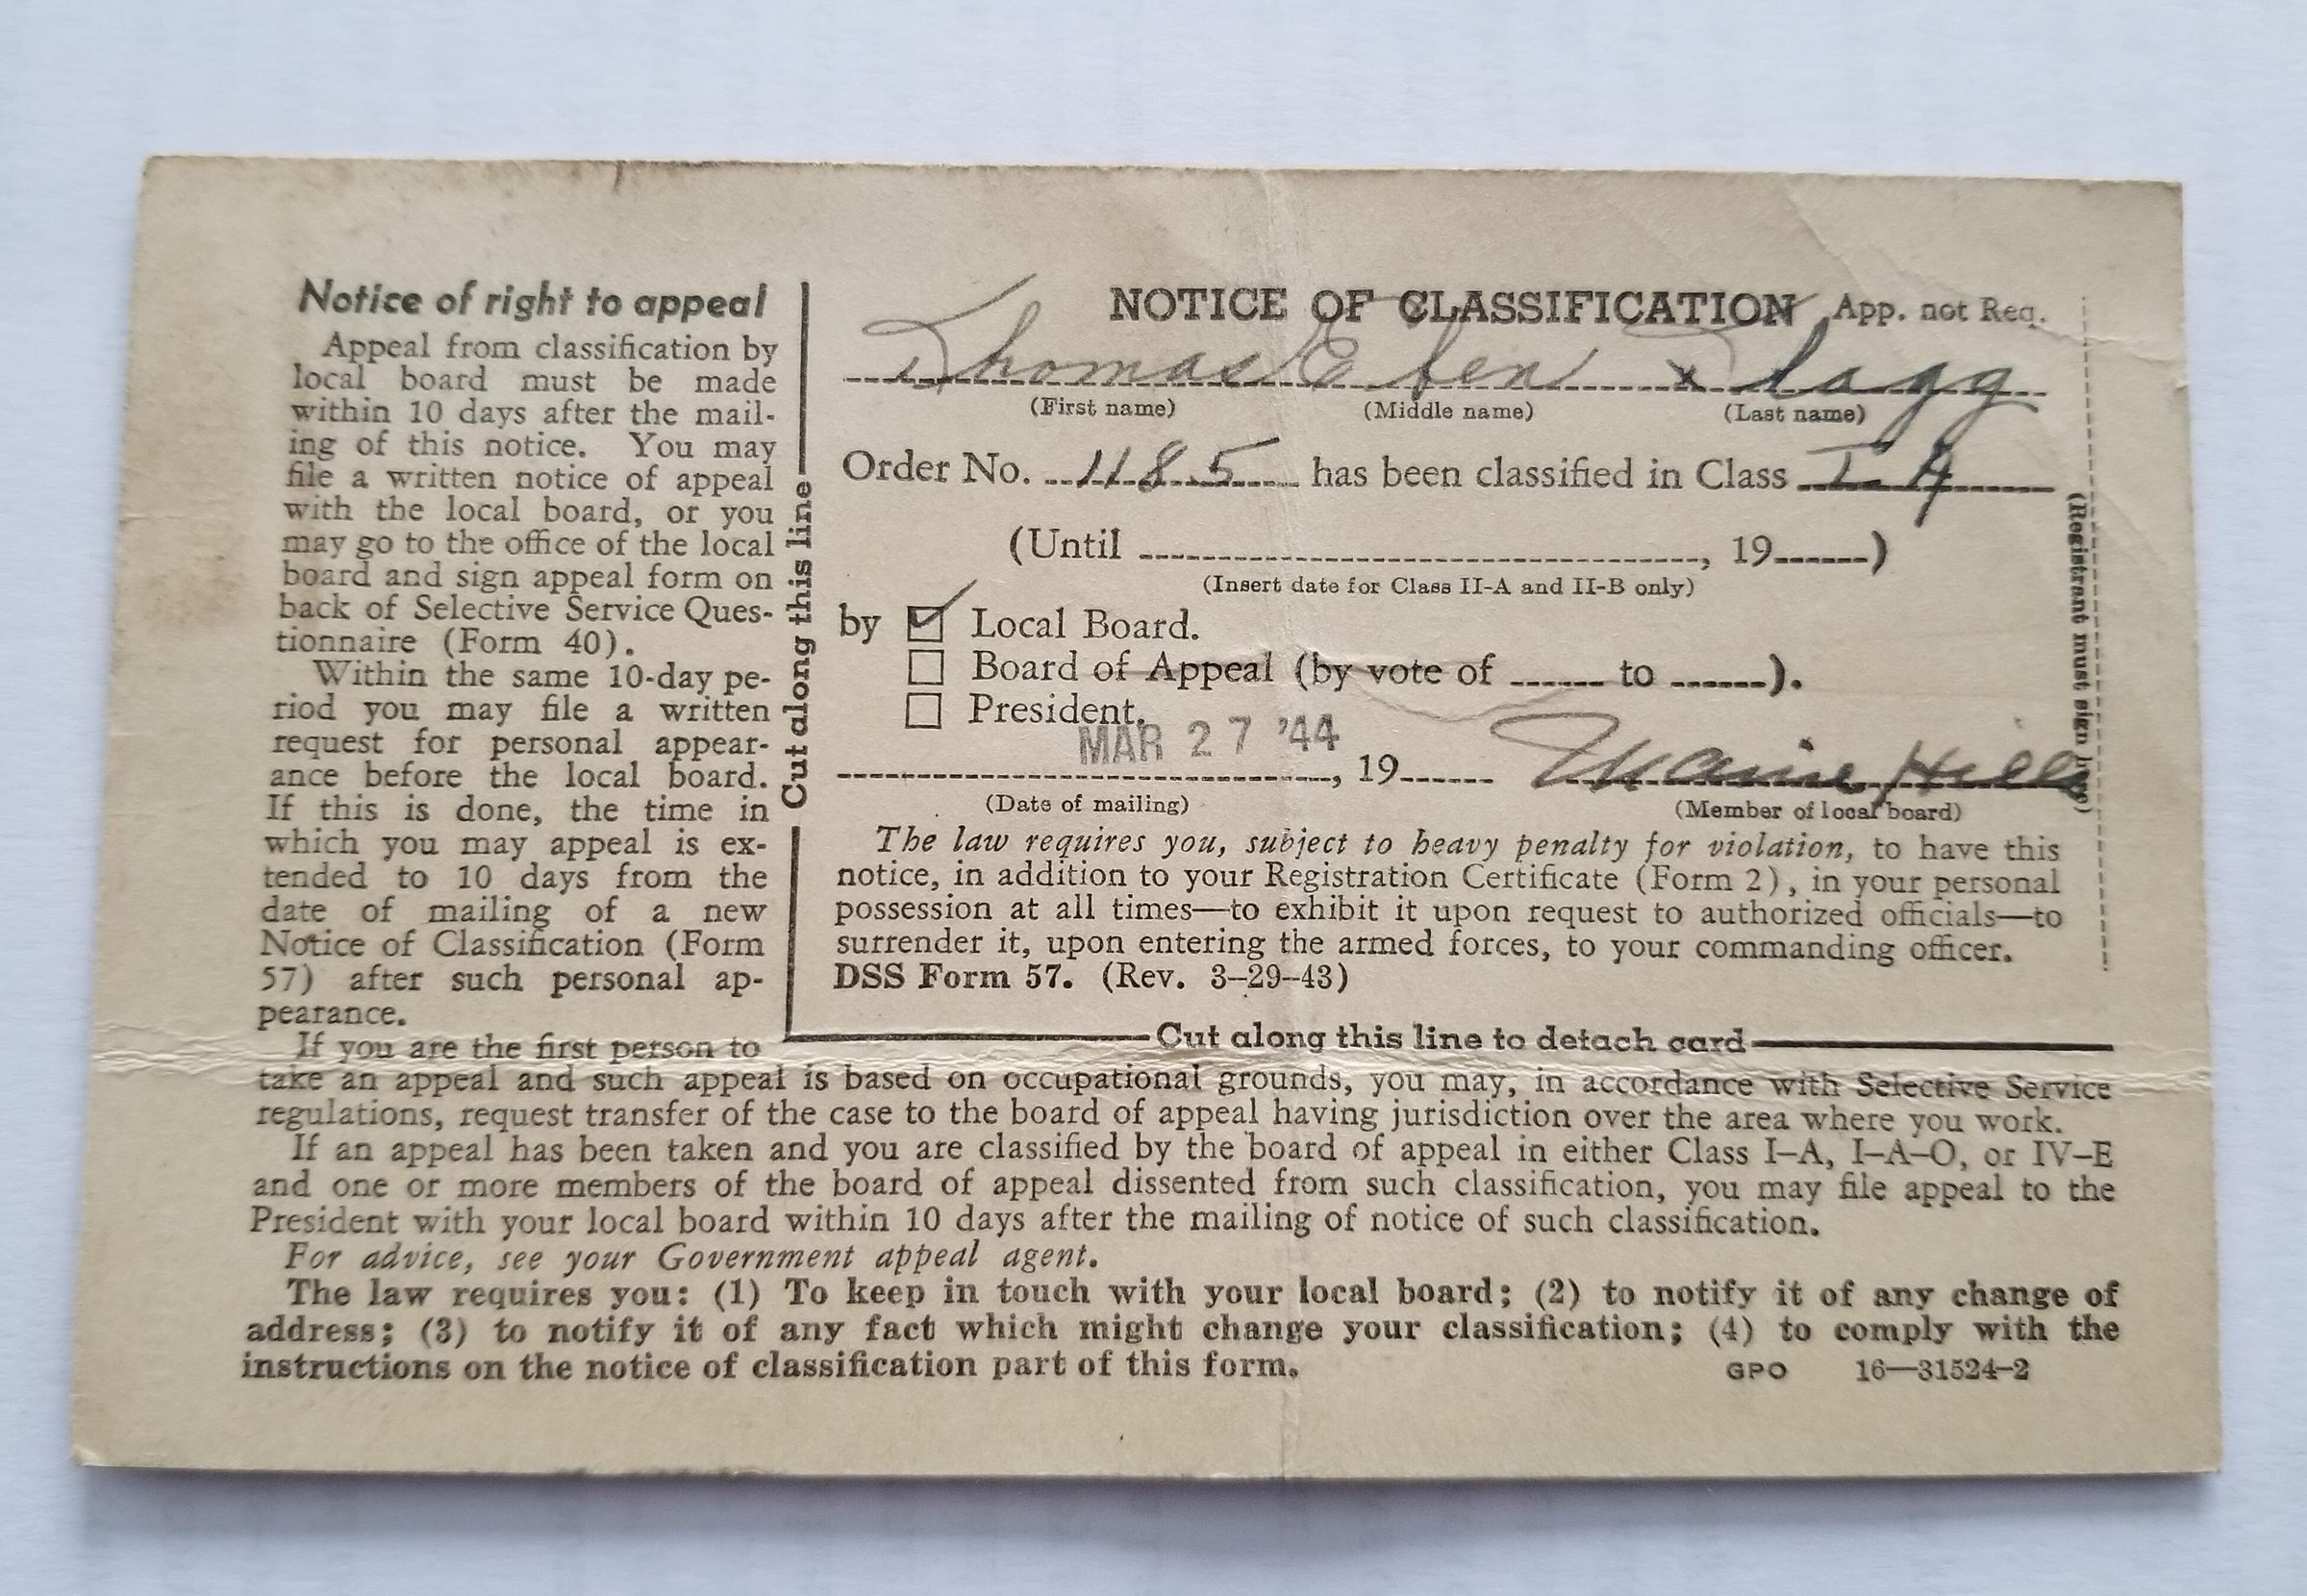 Notice of right to appeal
Appeal from classification by
local board must be made
within 10 days after the mail-
ing of this notice. You may
file a written notice of appeal
with the local board, or you
may go to the office of the local
board and sign appeal form on
back of Selective Service Ques-
tionnaire (Form 40).
Within the same 10-day pe-
riod you may file a written
request for personal appear-
ance before the local board.
If this is done, the time in
which you may appeal is ex-
tended to 10 days from the
date of mailing of a new
Notice of Classification (Form
57) after such personal ap-
pearance.
Cut along this line
NOTICE OF CLASSIFICATION App. not Req.
Thomas Eben x Flagg
(First name) (Middle name) (Last name)
Order No. 1185 has been classified in Class I-A
(Until , 19 )
(Insert date for Class II-A and II-B only)
by ☑ Local Board.
☐ Board of Appeal (by vote of to ).
☐ President.
MAR 27 '44
, 19
(Date of mailing) (Member of local board)
The law requires you, subject to heavy penalty for violation, to have this
notice, in addition to your Registration Certificate (Form 2), in your personal
possession at all times—to exhibit it upon request to authorized officials—to
surrender it, upon entering the armed forces, to your commanding officer.
DSS Form 57. (Rev. 3-29-43)
(Registrant must sign here)
Cut along this line to detach card
If you are the first person to
take an appeal and such appeal is based on occupational grounds, you may, in accordance with Selective Service
regulations, request transfer of the case to the board of appeal having jurisdiction over the area where you work.
If an appeal has been taken and you are classified by the board of appeal in either Class I-A, I-A-O, or IV-E
and one or more members of the board of appeal dissented from such classification, you may file appeal to the
President with your local board within 10 days after the mailing of notice of such classification.
For advice, see your Government appeal agent.
The law requires you: (1) To keep in touch with your local board; (2) to notify it of any change of
address; (3) to notify it of any fact which might change your classification; (4) to comply with the
instructions on the notice of classification part of this form.
GPO 16—31524-2